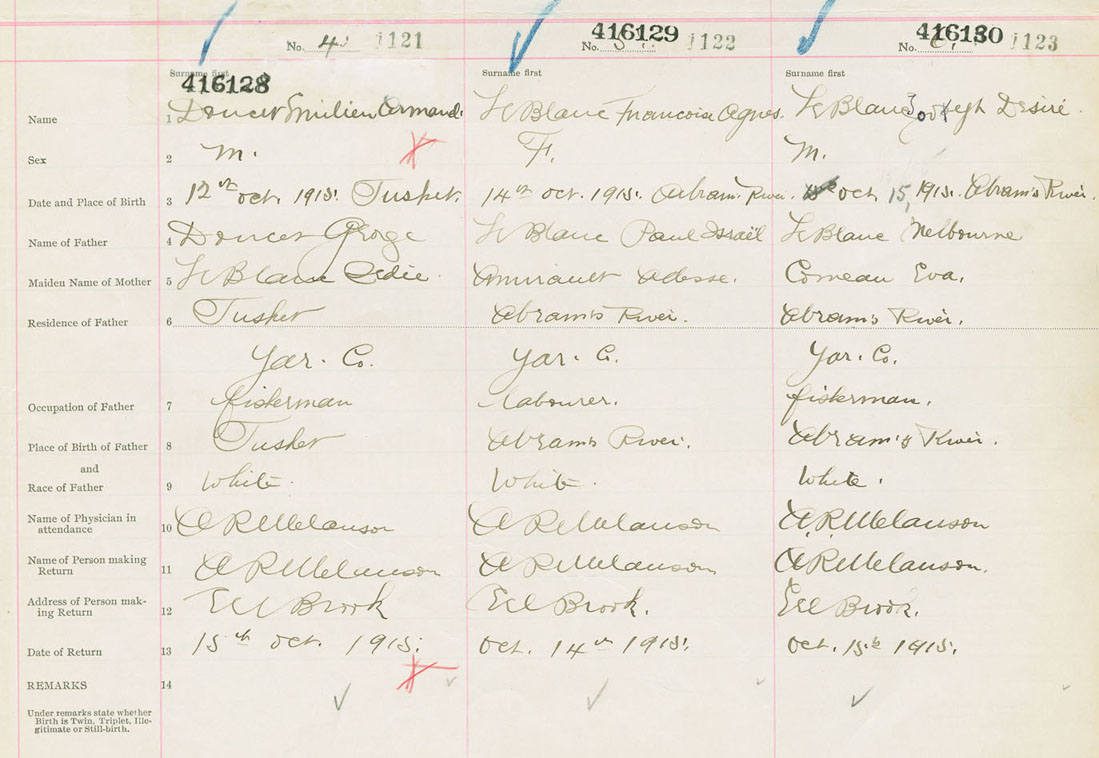 416129 416130
No. 4. 1121 No. 5. 1122 No. 6. 1123
Surname first Surname first Surname first
416128
Name 1 Doucet Emilien Armand. Le Blanc Francoise Agnes. Le Blanc Joseph Desiré.
Sex 2 M. F. M.
Date and Place of Birth 3 12th oct. 1915. Tusket. 14th oct. 1915. Abram's River. oct. 15, 1915. Abram's River.
Name of Father 4 Doucet George Le Blanc Paul Israël Le Blanc Melbourne
Maiden Name of Mother 5 Le Blanc Amirault Adesse. Comeau Eva.
Residence of Father 6 Tusket Abram's River. Abram's River.
Yar. Co. Yar. Co. Yar. Co.
Occupation of Father 7 fisherman labourer. fisherman.
Place of Birth of Father 8 Tusket Abram's River. Abram's River.
and
Race of Father 9 White. White. White.
Name of Physician in
attendance 10 A R Melanson A R Melanson A. R. Melanson
Name of Person making
Return 11 A R Melanson A R Melanson A R Melanson.
Address of Person mak-
ing Return 12 Eel Brook Eel Brook. Eel Brook.
Date of Return 13 15th oct. 1915. oct. 14th 1915. oct. 15th 1915.
REMARKS 14
Under remarks state whether
Birth is Twin, Triplet, Ille-
gitimate or Still-birth.